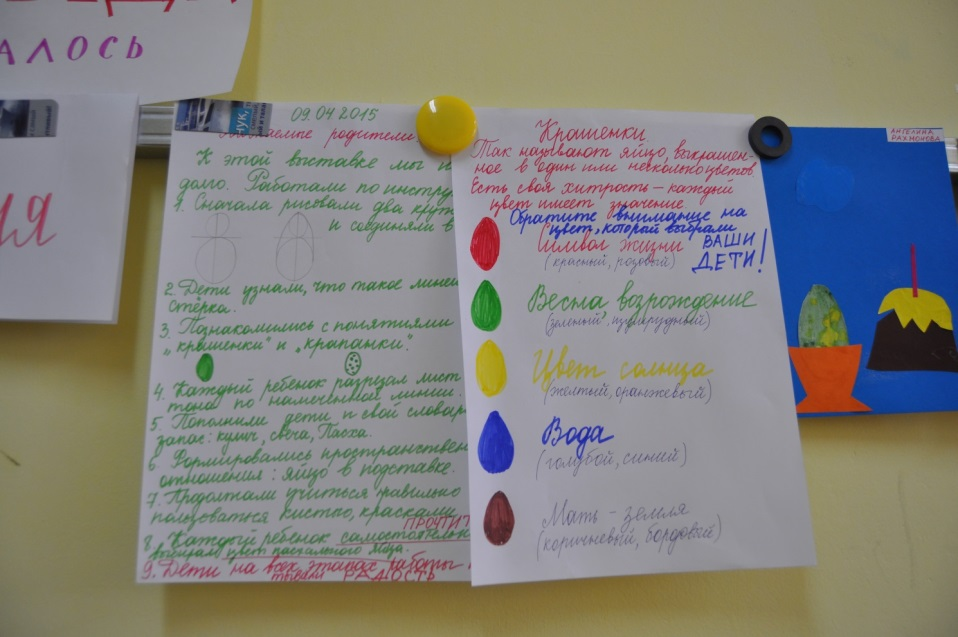 АЛОСЬ
ИЯ
09.04.2015
родители
К этой выставке мы
долго. Работали по
1. Сначала рисовали два
и соединяли в
2. Дети узнали, что такое
стёрка.
3. Познакомились с понятиями
„крашенки" и „крапанки".
4. Каждый ребёнок разрезал лист
тона по намеченной линии.
5. Пополнили дети и свой
запас: кулич, свеча, Пасха.
6. Формировались
отношения: яйцо в подставке.
7. Продолжали учиться правильно
пользоваться кистью, красками
8. Каждый ребёнок
выбирал цвет пасхального яйца.
9. Дети на всех этапах работы
РАДОСТЬ
Крашенки
Так называют яйцо, выкрашен-
ное в один или несколько цветов.
Есть своя хитрость – каждый
цвет имеет значение.
Обратите внимание на
цвет, который выбрали
ВАШИ
ДЕТИ!
Символ жизни
(красный, розовый)
Весна, возрождение
(зеленый, изумрудный)
Цвет солнца
(желтый, оранжевый)
Вода
(голубой, синий)
Мать - земля
(коричневый, бордовый)
АНГЕЛИНА
РАХМОНОВА